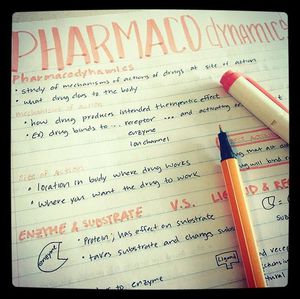 PHARMACOdynamics
Pharmacodynamics
• study of mechanisms of actions of drugs at site of action
• what drug does to the body
mechanism of action
• how drug produces intended therapeutic effect
• Ex) drug binds to... receptor ... and activating
enzyme
Ion channel
Site of action
• location in body where drug works
• where you want the drug to work
drug will bind
ENZYME & SUBSTRATE V.S. LIGAND & RE
• Protein; has effect on substrate
• takes substrate and changes
enzyme
Ligand
to enzyme